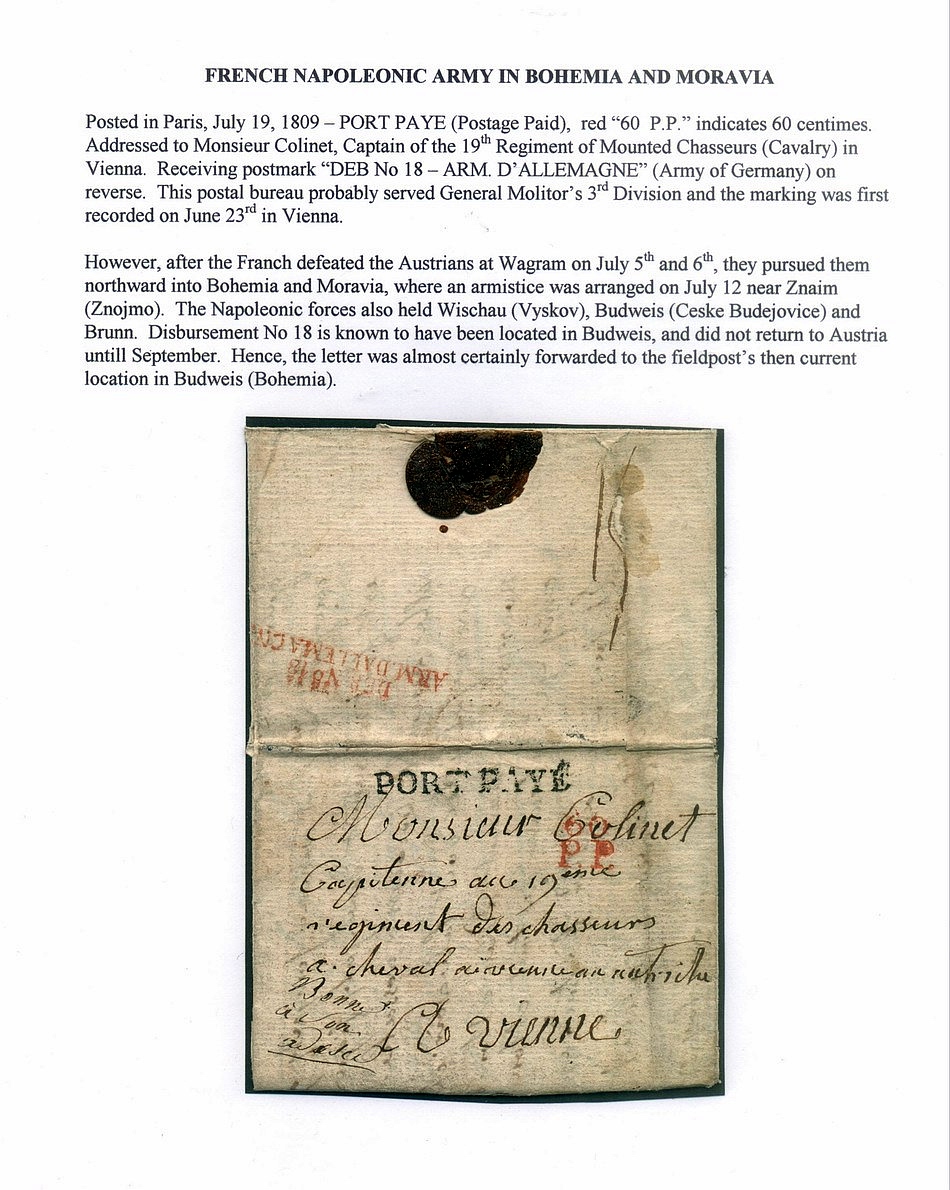 FRENCH NAPOLEONIC ARMY IN BOHEMIA AND MORAVIA
Posted in Paris, July 19, 1809 – PORT PAYE (Postage Paid), red “60 P.P.” indicates 60 centimes.
Addressed to Monsieur Colinet, Captain of the 19th Regiment of Mounted Chasseurs (Cavalry) in
Vienna. Receiving postmark “DEB No 18 – ARM. D’ALLEMAGNE” (Army of Germany) on
reverse. This postal bureau probably served General Molitor’s 3rd Division and the marking was first
recorded on June 23rd in Vienna.
However, after the Franch defeated the Austrians at Wagram on July 5th and 6th, they pursued them
northward into Bohemia and Moravia, where an armistice was arranged on July 12 near Znaim
(Znojmo). The Napoleonic forces also held Wischau (Vyskov), Budweis (Ceske Budejovice) and
Brunn. Disbursement No 18 is known to have been located in Budweis, and did not return to Austria
untill September. Hence, the letter was almost certainly forwarded to the fieldpost’s then current
location in Budweis (Bohemia).
ARM. D'ALLEMAGNE
PORT PAYÉ
Monsieur Colinet
60
P.P.
Capitenne au 19eme
regiment des chasseurs
a cheval
A vienne